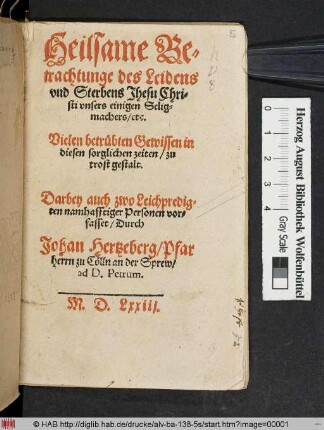 Heilsame Be-
trachtunge des Leidens
vnd Sterbens Jhesu Chri-
sti vnsers einigen Selig-
machers/etc.
Vielen betrübten Gewissen in
diesen sorglichen zeiten/zu
trost gestalt.
Darbey auch zwo Leichpredig-
ten namhafftiger Personen vor-
fasset/Durch
Johan Hertzeberg/Pfar
herrn zu Cölln an der Sprew/
ad D. Petrum.
M. D. Lxxiii.
Herzog August Bibliothek Wolfenbüttel
Gray Scale
© HAB http://diglib.hab.de/drucke/alv-ba-138-5s/start.htm?image=00001